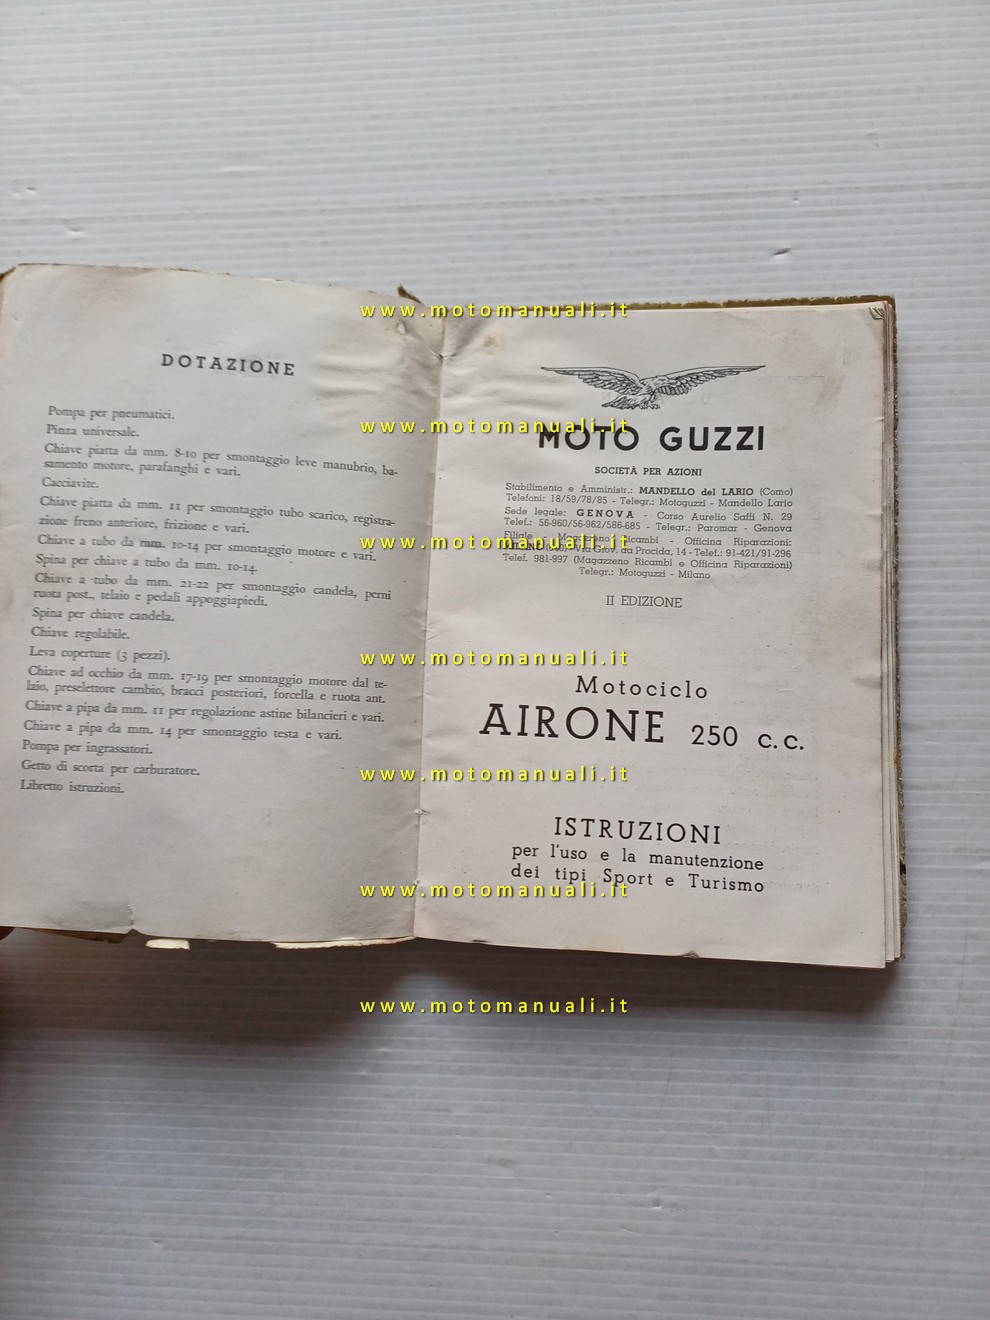 DOTAZIONE
Pompa per pneumatici.
Pinza universale.
Chiave piatta da mm. 8-10 per smontaggio leve manubrio, ba-
samento motore, parafanghi e vari.
Cacciavite.
Chiave piatta da mm. 11 per smontaggio tubo scarico, registra-
zione freno anteriore, frizione e vari.
Chiave a tubo da mm. 10-14 per smontaggio motore e vari.
Spina per chiave a tubo da mm. 10-14.
Chiave a tubo da mm. 21-22 per smontaggio candela, perni
ruota post., telaio e pedali appoggiapiedi.
Spina per chiave candela.
Chiave regolabile.
Leva coperture (3 pezzi).
Chiave ad occhio da mm. 17-19 per smontaggio motore dal te-
laio, preselettore cambio, bracci posteriori, forcella e ruota ant.
Chiave a pipa da mm. 11 per regolazione astine bilancieri e vari.
Chiave a pipa da mm. 14 per smontaggio testa e vari.
Pompa per ingrassatori.
Getto di scorta per carburatore.
Libretto istruzioni.
MOTO GUZZI
SOCIETÀ PER AZIONI
Stabilimento e Amministr.: MANDELLO del LARIO (Como)
Telefoni: 18/59/78/85 - Telegr.: Motoguzzi - Mandello Lario
Sede legale: GENOVA - Corso Aurelio Saffi N. 29
Telef.: 56-960/56-962/586-685 - Telegr.: Paromar - Genova
Filiale - Magazzeno Ricambi - Officina Riparazioni:
Via Giov. da Procida, 14 - Telef.: 91-421/91-296
Telef. 981-997 (Magazzeno Ricambi e Officina Riparazioni)
Telegr.: Motoguzzi - Milano
II EDIZIONE
Motociclo
AIRONE 250 c.c.
ISTRUZIONI
per l'uso e la manutenzione
dei tipi Sport e Turismo
www.motomanuali.it
www.motomanuali.it
www.motomanuali.it
www.motomanuali.it
www.motomanuali.it
www.motomanuali.it
www.motomanuali.it